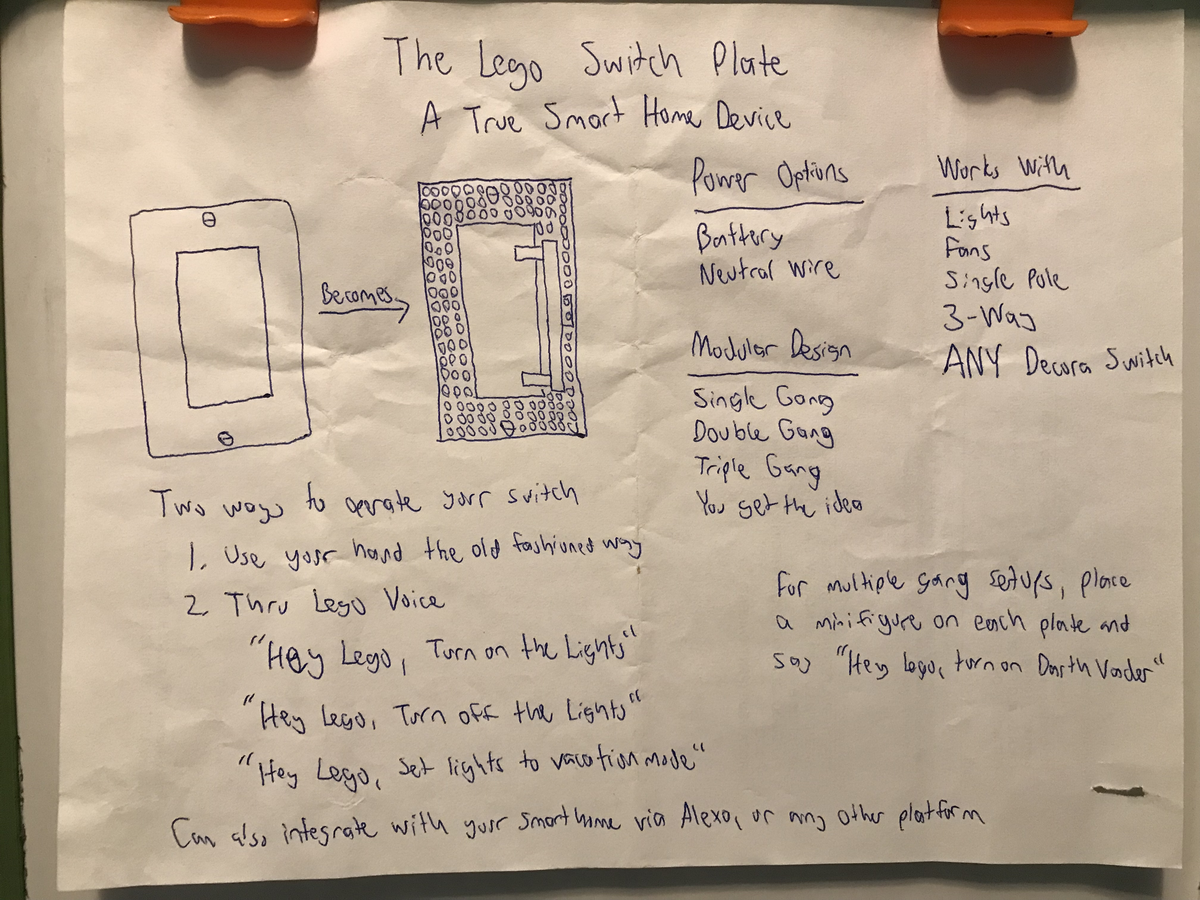 The Lego Switch Plate
A True Smart Home Device
Becomes
Power Options
Battery
Neutral Wire
Modular Design
Single Gang
Double Gang
Triple Gang
You get the idea
Works With
Lights
Fans
Single Pole
3-Way
ANY Decora Switch
Two ways to operate your switch
1. Use your hand the old fashioned way
2. Thru Lego Voice
"Hey Lego, Turn on the Lights"
"Hey Lego, Turn off the Lights"
"Hey Lego, Set lights to vacation mode"
For multiple gang setups, place
a minifigure on each plate and
say "Hey Lego, turn on Darth Vader"
Can also integrate with your smart home via Alexa, or any other platform